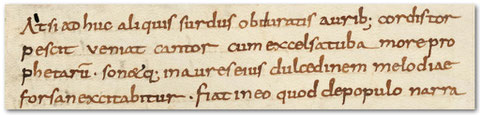 Atsi adhuc aliquis surdus obduratis aurib; cordistor
pescit veniat cantor cum excelsa tuba more pro
phetarū. sonetq; in aures eius dulcedinem melodiae
forsan excitabitur. fiat in eo quod de populo narra